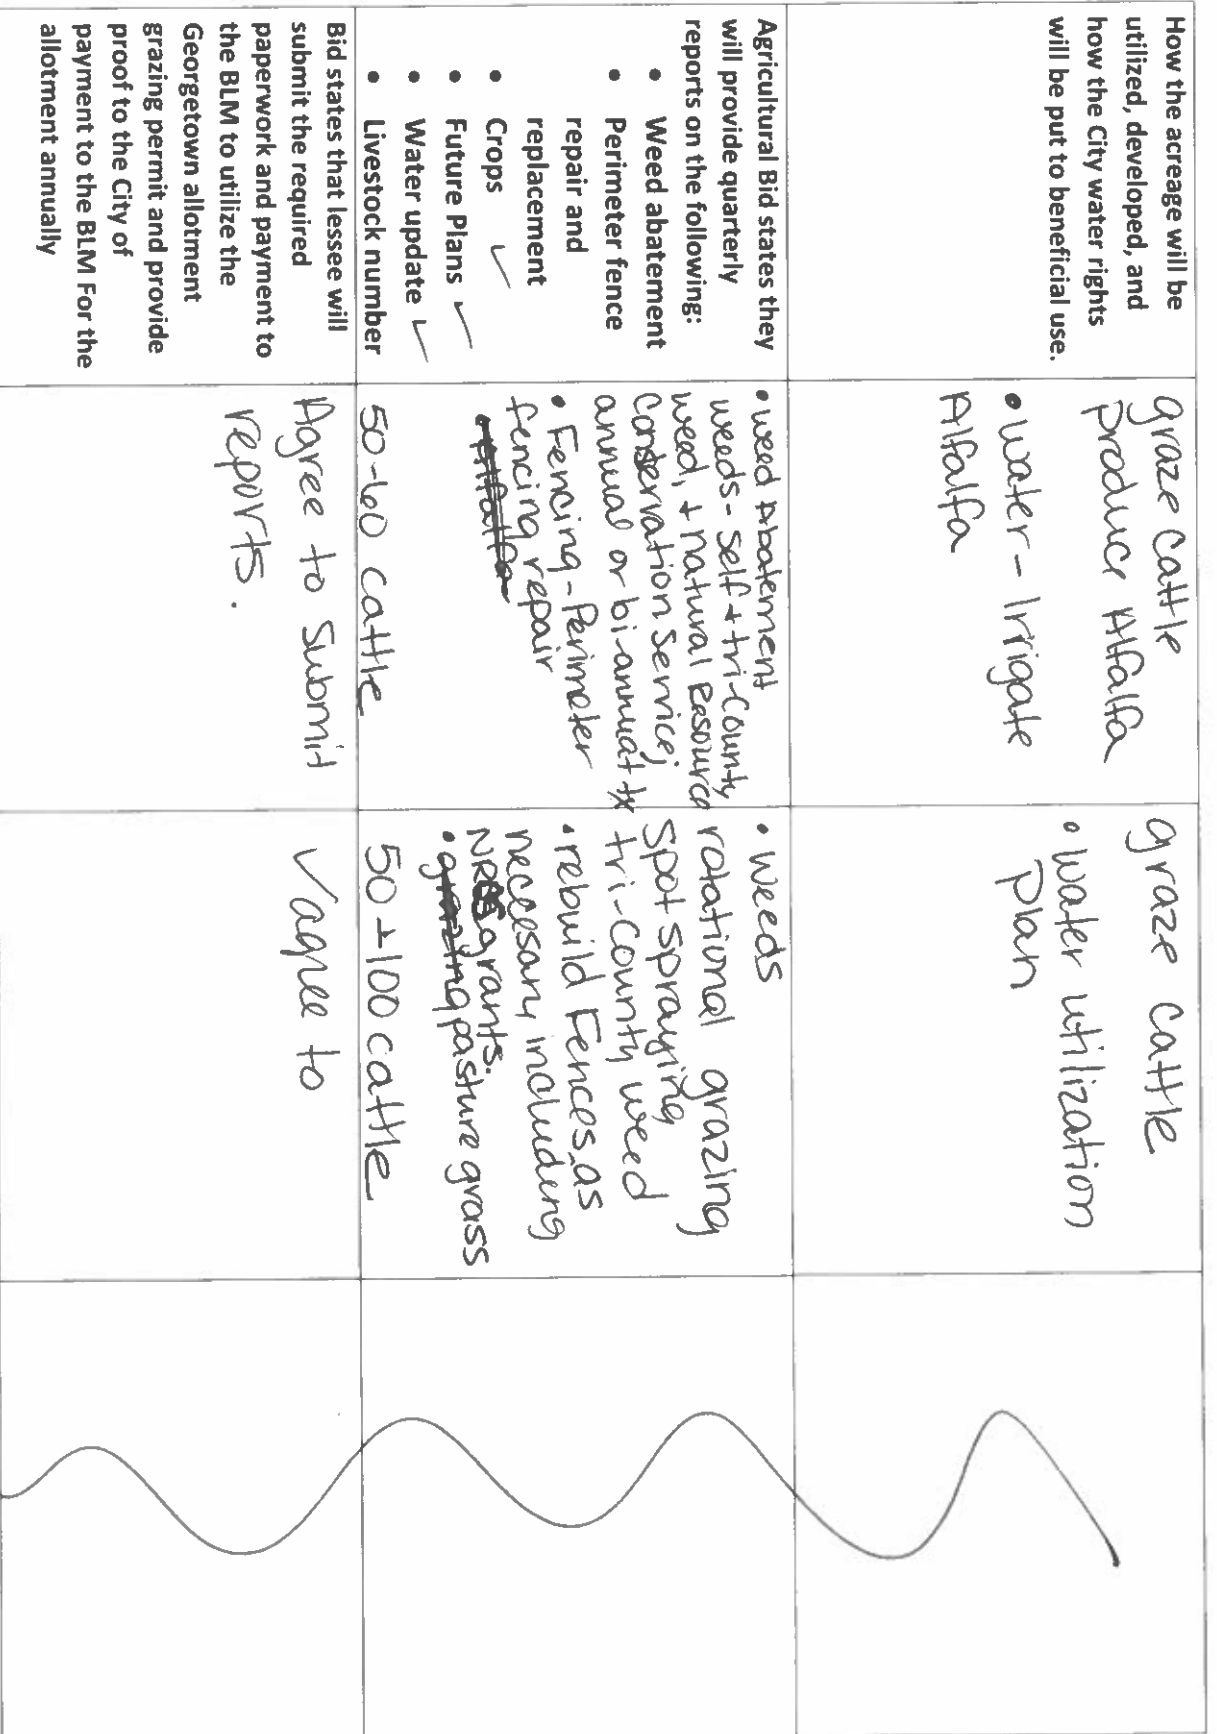 How the acreage will be
utilized, developed, and
how the City water rights
will be put to beneficial use.
graze cattle
produce Alfalfa
• water - Irrigate
Alfalfa
graze cattle
• water utilization
plan
Agricultural Bid states they
will provide quarterly
reports on the following:
• Weed abatement
• Perimeter fence
repair and
replacement
• Crops ✓
• Future Plans ✓
• Water update ✓
• Livestock number
• weed Abatement
weeds - self + tri-county
weed, + natural Resource
Conservation Service;
annual or bi-annual tx
• Fencing - Perimeter
fencing repair
50-60 cattle
• weeds
rotational grazing
spot spraying
tri-county weed
• rebuild Fences as
neccesary including
NRCS grants.
• grazing pasture grass
50 ± 100 cattle
Bid states that lessee will
submit the required
paperwork and payment to
the BLM to utilize the
Georgetown allotment
grazing permit and provide
proof to the City of
payment to the BLM For the
allotment annually
Agree to Submit
reports.
✓ agree to